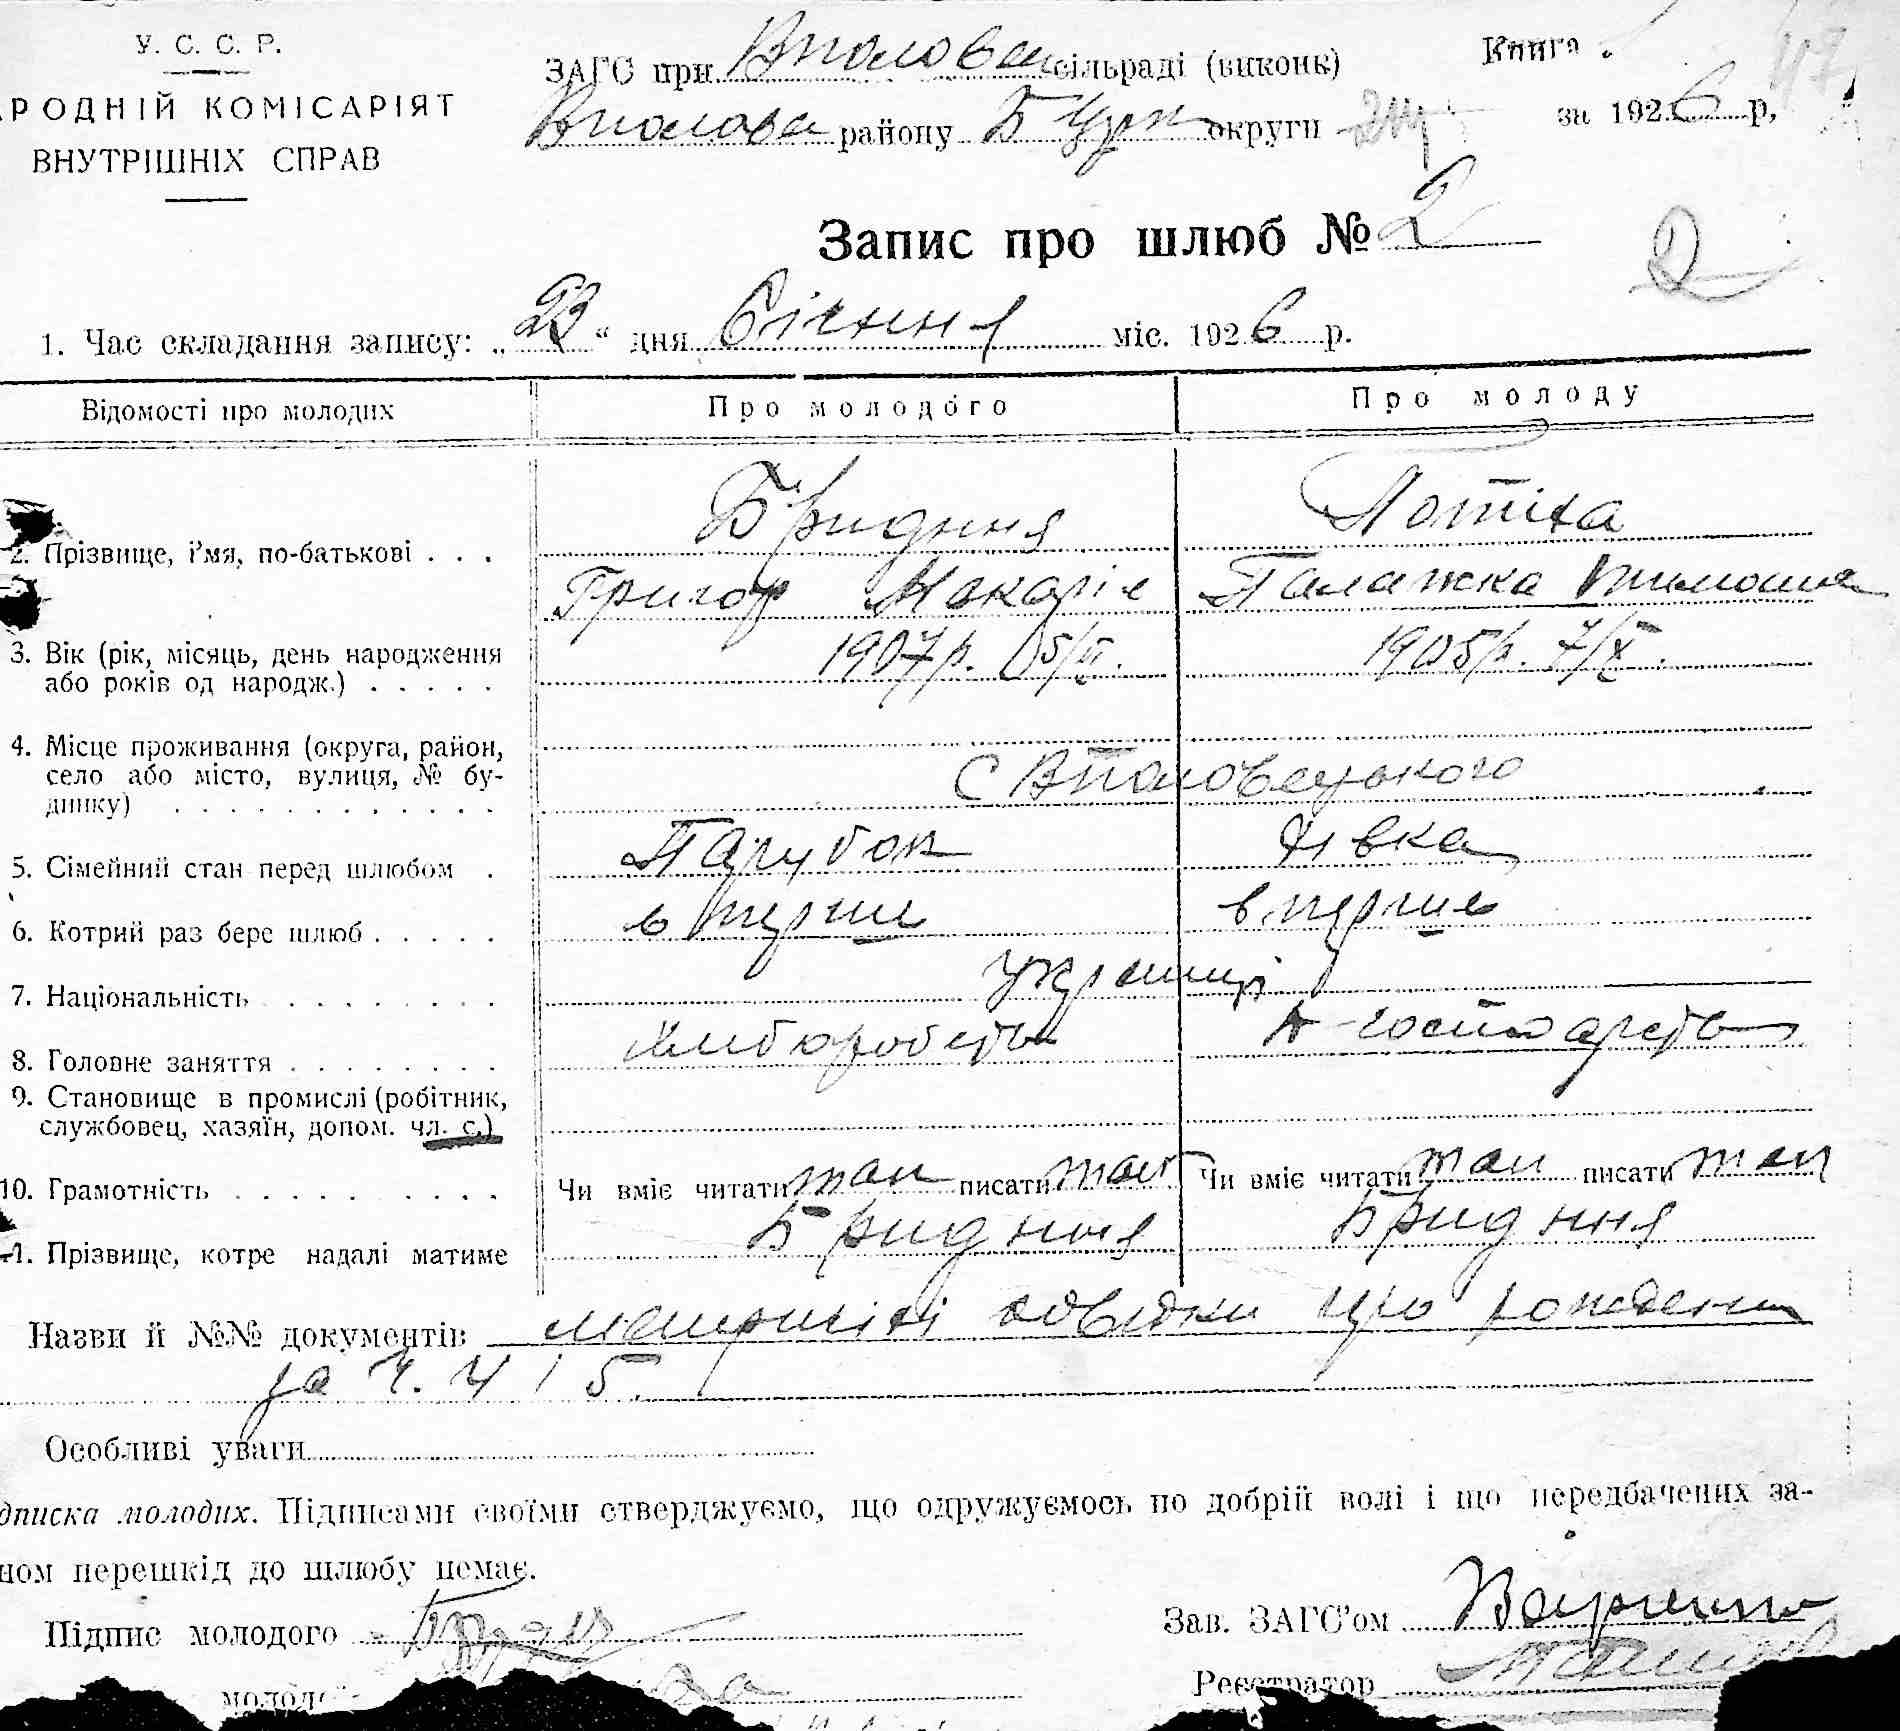 У. С. С. Р.
РОДНІЙ КОМІСАРІЯТ
ВНУТРІШНІХ СПРАВ
ЗАГС при Вполовец сільраді (виконк)
Вполова району Б Церк округи
Книга
за 1926 р,
Запис про шлюб № 2
2
1. Час складання запису: „23“ дня Січння міс. 1926 р.
Відомості про молодих Про молодого Про молоду
2. Прізвище, і'мя, по-батькові . . . Бридння Потіха
Григор Макаріє Палажка Тимошів
3. Вік (рік, місяць, день народження 1907 р. 1905 р. 7/X.
або років од народж.) . . . . .
4. Місце проживання (округа, район,
село або місто, вулиця, № бу- С Вполовецького
динку) . . . . . . . . . . . .
5. Сімейний стан перед шлюбом . Парубок Дівка
6. Котрий раз бере шлюб . . . . . в перше в перше
7. Національність . . . . . . . . . українці
8. Головне заняття . . . . . . . . Хліборобств Д-господарств
9. Становище в промислі (робітник,
службовец, хазяїн, допом. чл. с.)
10. Грамотність . . . . . . . . . . Чи вміє читати так писати так Чи вміє читати так писати так
1. Прізвище, котре надалі матиме Бридння Бридння
Назви й №№ документів метричні довідки про рождення
за Ч. 4 і 5.
Особливі уваги
дписка молодих. Підписами своїми стверджуємо, що одружуємось по добрій волі і що передбачених за-
ном перешкід до шлюбу немає.
Підпис молодого
Зав. ЗАГС'ом
молодо
Реєстратор